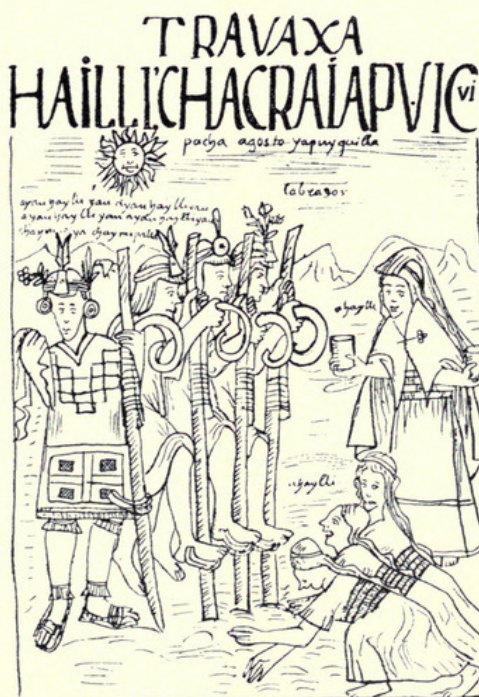 TRAVAXA
HAILLI CHACRAIAPVIC
vi
pacha agosto yapuyquilla
labrador
ayau haylli yau ayau haylli yau
ayau haylli yau ayau haylli yau
chaymi
ahaylli
ahaylli